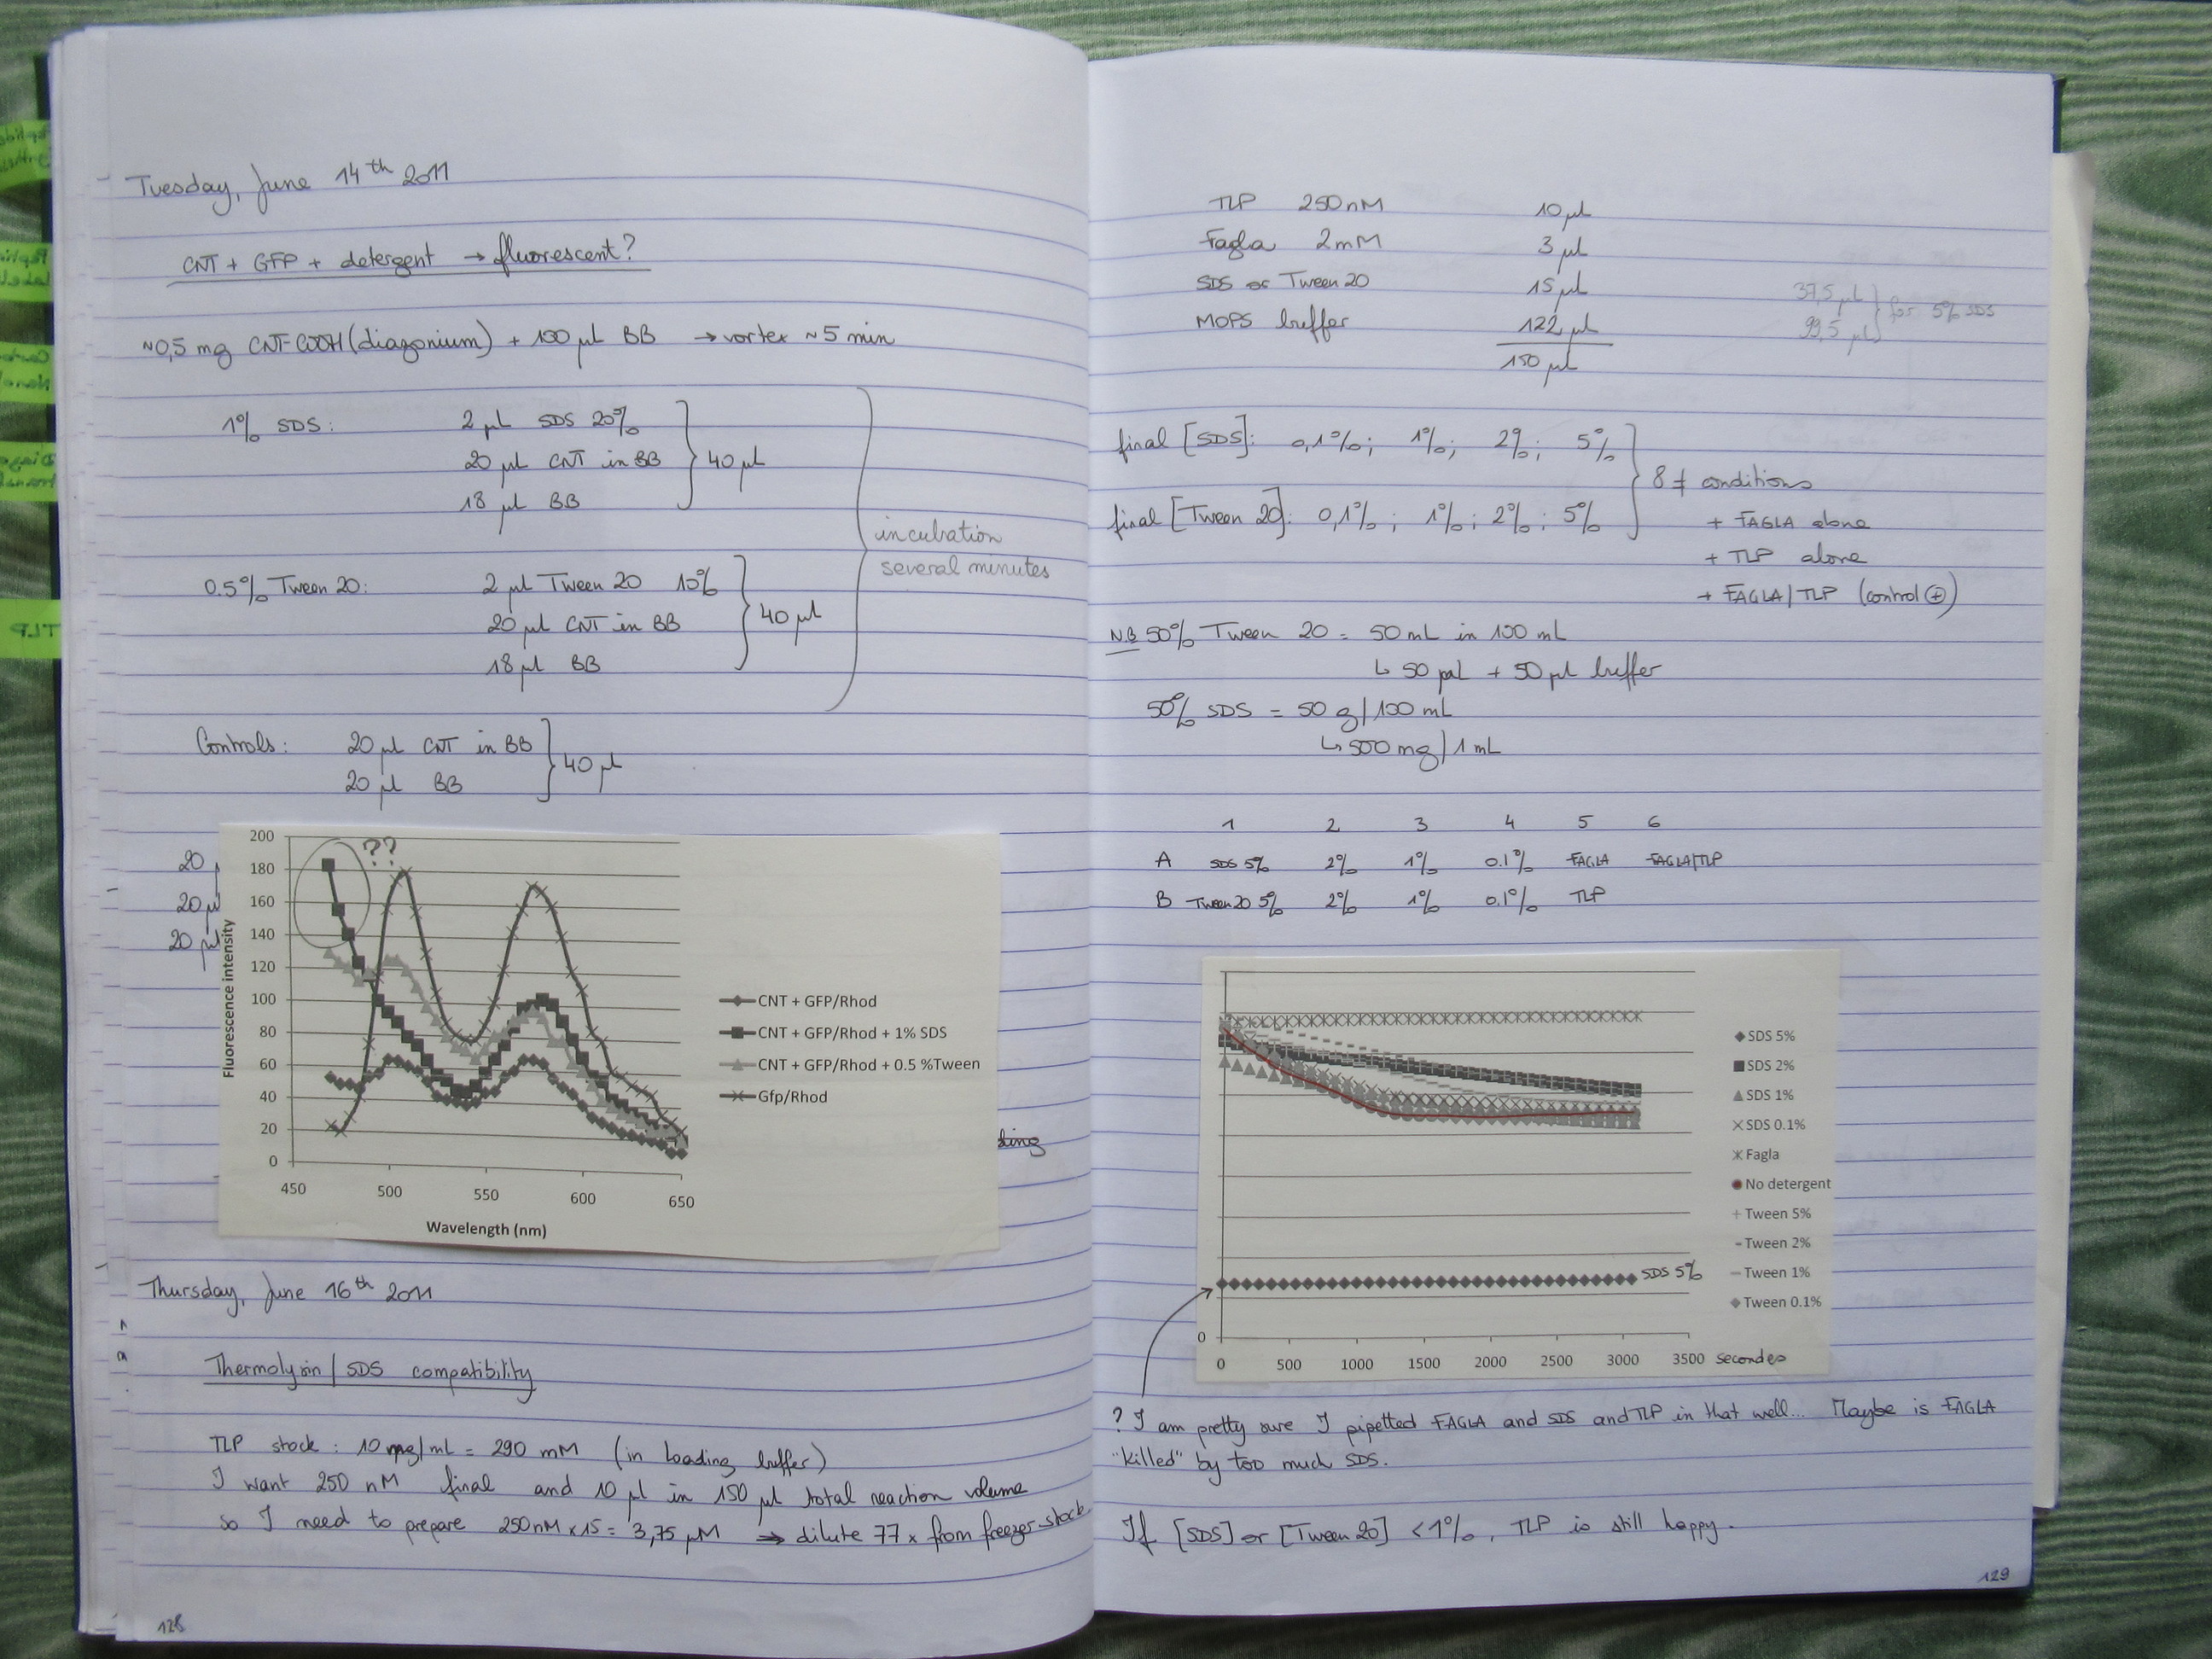 Tuesday, June 14th 2011
CNT + GFP + detergent → fluorescent?
~0,5 mg CNT-COOH (diazonium) + 100 µl BB → vortex ~5 min
1% SDS: 2 µL SDS 20%
20 µl CNT in BB } 40 µl
18 µl BB
incubation
several minutes
0.5% Tween 20: 2 µl Tween 20 10%
20 µl CNT in BB } 40 µl
18 µl BB
Controls: 20 µl CNT in BB } 40 µl
20 µl BB
20
20 µl
20 µl
??
Fluorescence intensity
200
180
160
140
120
100
80
60
40
20
0
450 500 550 600 650
Wavelength (nm)
CNT + GFP/Rhod
CNT + GFP/Rhod + 1% SDS
CNT + GFP/Rhod + 0.5 %Tween
Gfp/Rhod
Thursday, June 16th 2011
Thermolysin / SDS compatibility
TLP stock : 10 mg/mL = 290 mM (in Loading buffer)
I want 250 nM final and 10 µl in 150 µl total reaction volume
so I need to prepare 250nM x 15 = 3,75 µM ⇒ dilute 77 x from freezer stock
128
TLP
TLP 250 nM 10 µl
Fagla 2 mM 3 µl
SDS or Tween 20 15 µl
MOPS buffer 122 µl
150 µl
37,5 µl } for 5% SDS
99,5 µl
final [SDS]: 0,1%; 1%; 2%; 5%
final [Tween 20]: 0,1%; 1%; 2%; 5%
} 8 ≠ conditions
+ FAGLA alone
+ TLP alone
+ FAGLA/TLP (control ⊕)
N.B 50% Tween 20 = 50 mL in 100 mL
↳ 50 µL + 50 µl buffer
50% SDS = 50 g/100 mL
↳ 500 mg/1 mL
1 2 3 4 5 6
A SDS 5% 2% 1% 0.1% FAGLA FAGLA/TLP
B Tween 20 5% 2% 1% 0,1% TLP
SDS 5%
SDS 2%
SDS 1%
SDS 0.1%
Fagla
No detergent
Tween 5%
Tween 2%
Tween 1%
Tween 0.1%
SDS 5%
0
0 500 1000 1500 2000 2500 3000 3500 secondes
? I am pretty sure I pipetted FAGLA and SDS and TLP in that well... Maybe is FAGLA
"killed" by too much SDS.
If [SDS] or [Tween 20] < 1%, TLP is still happy.
129